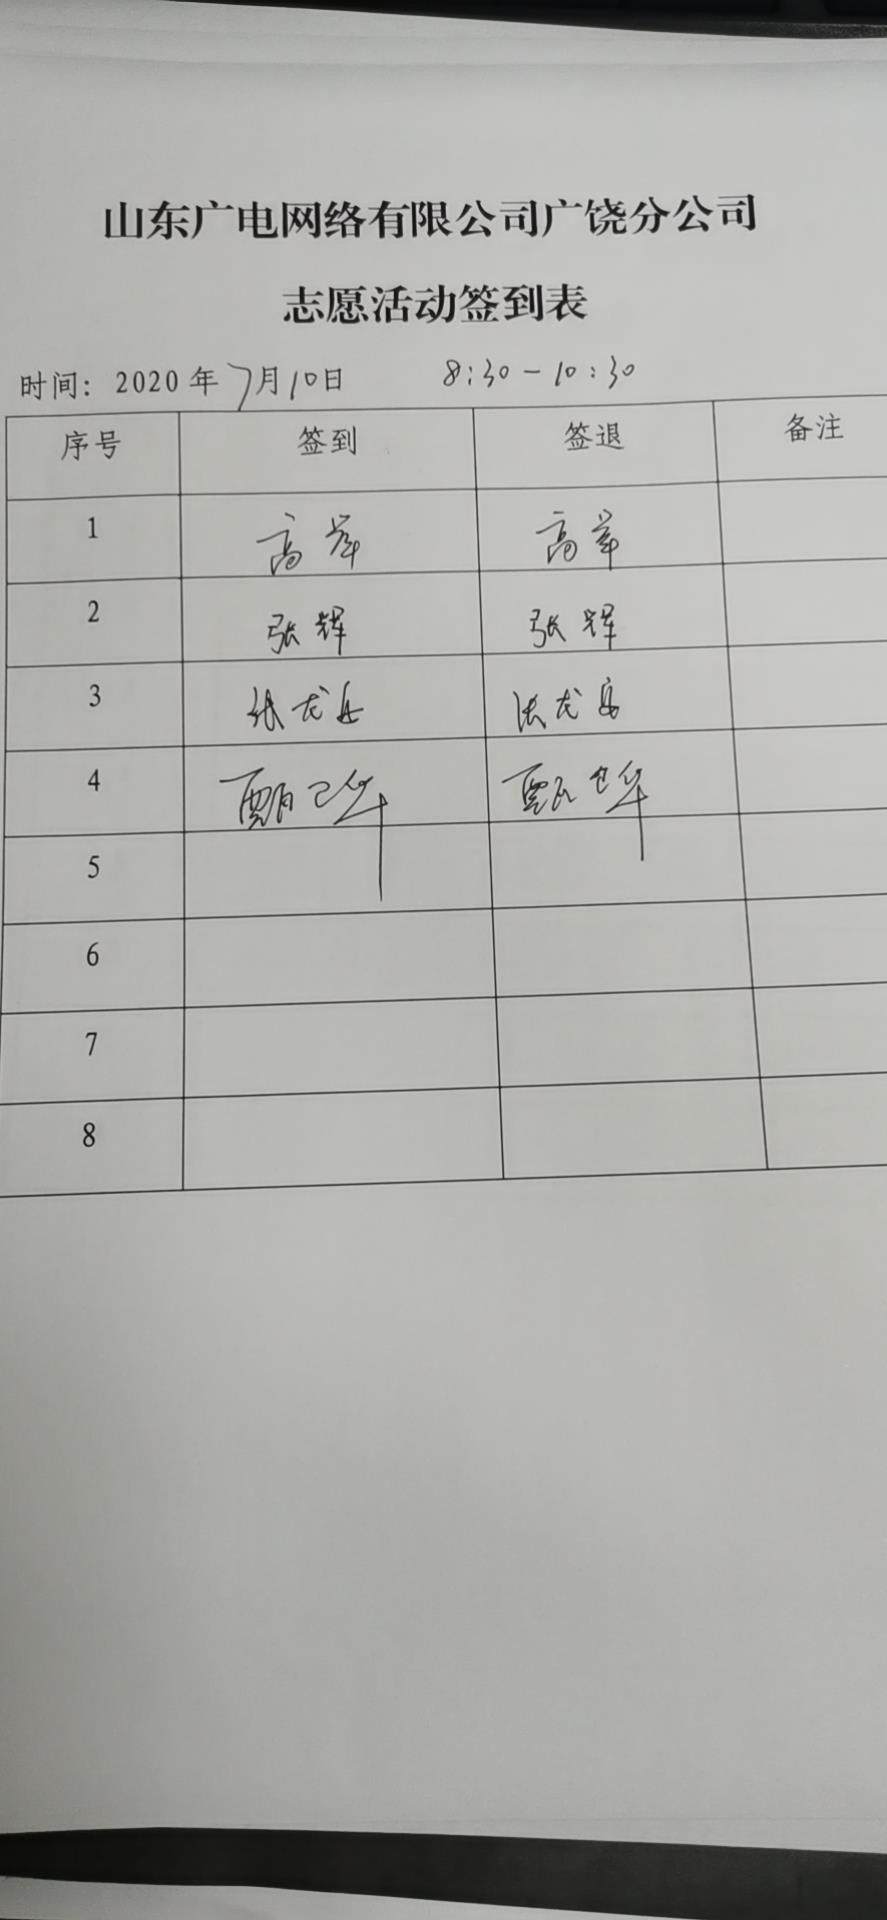 山东广电网络有限公司广饶分公司
志愿活动签到表
时间: 2020年7月10日 8:30-10:30
序号 签到 签退 备注
1 高 高
2 张辉 张辉
3 张龙 张龙
4 甄 华 甄 华
5
6
7
8